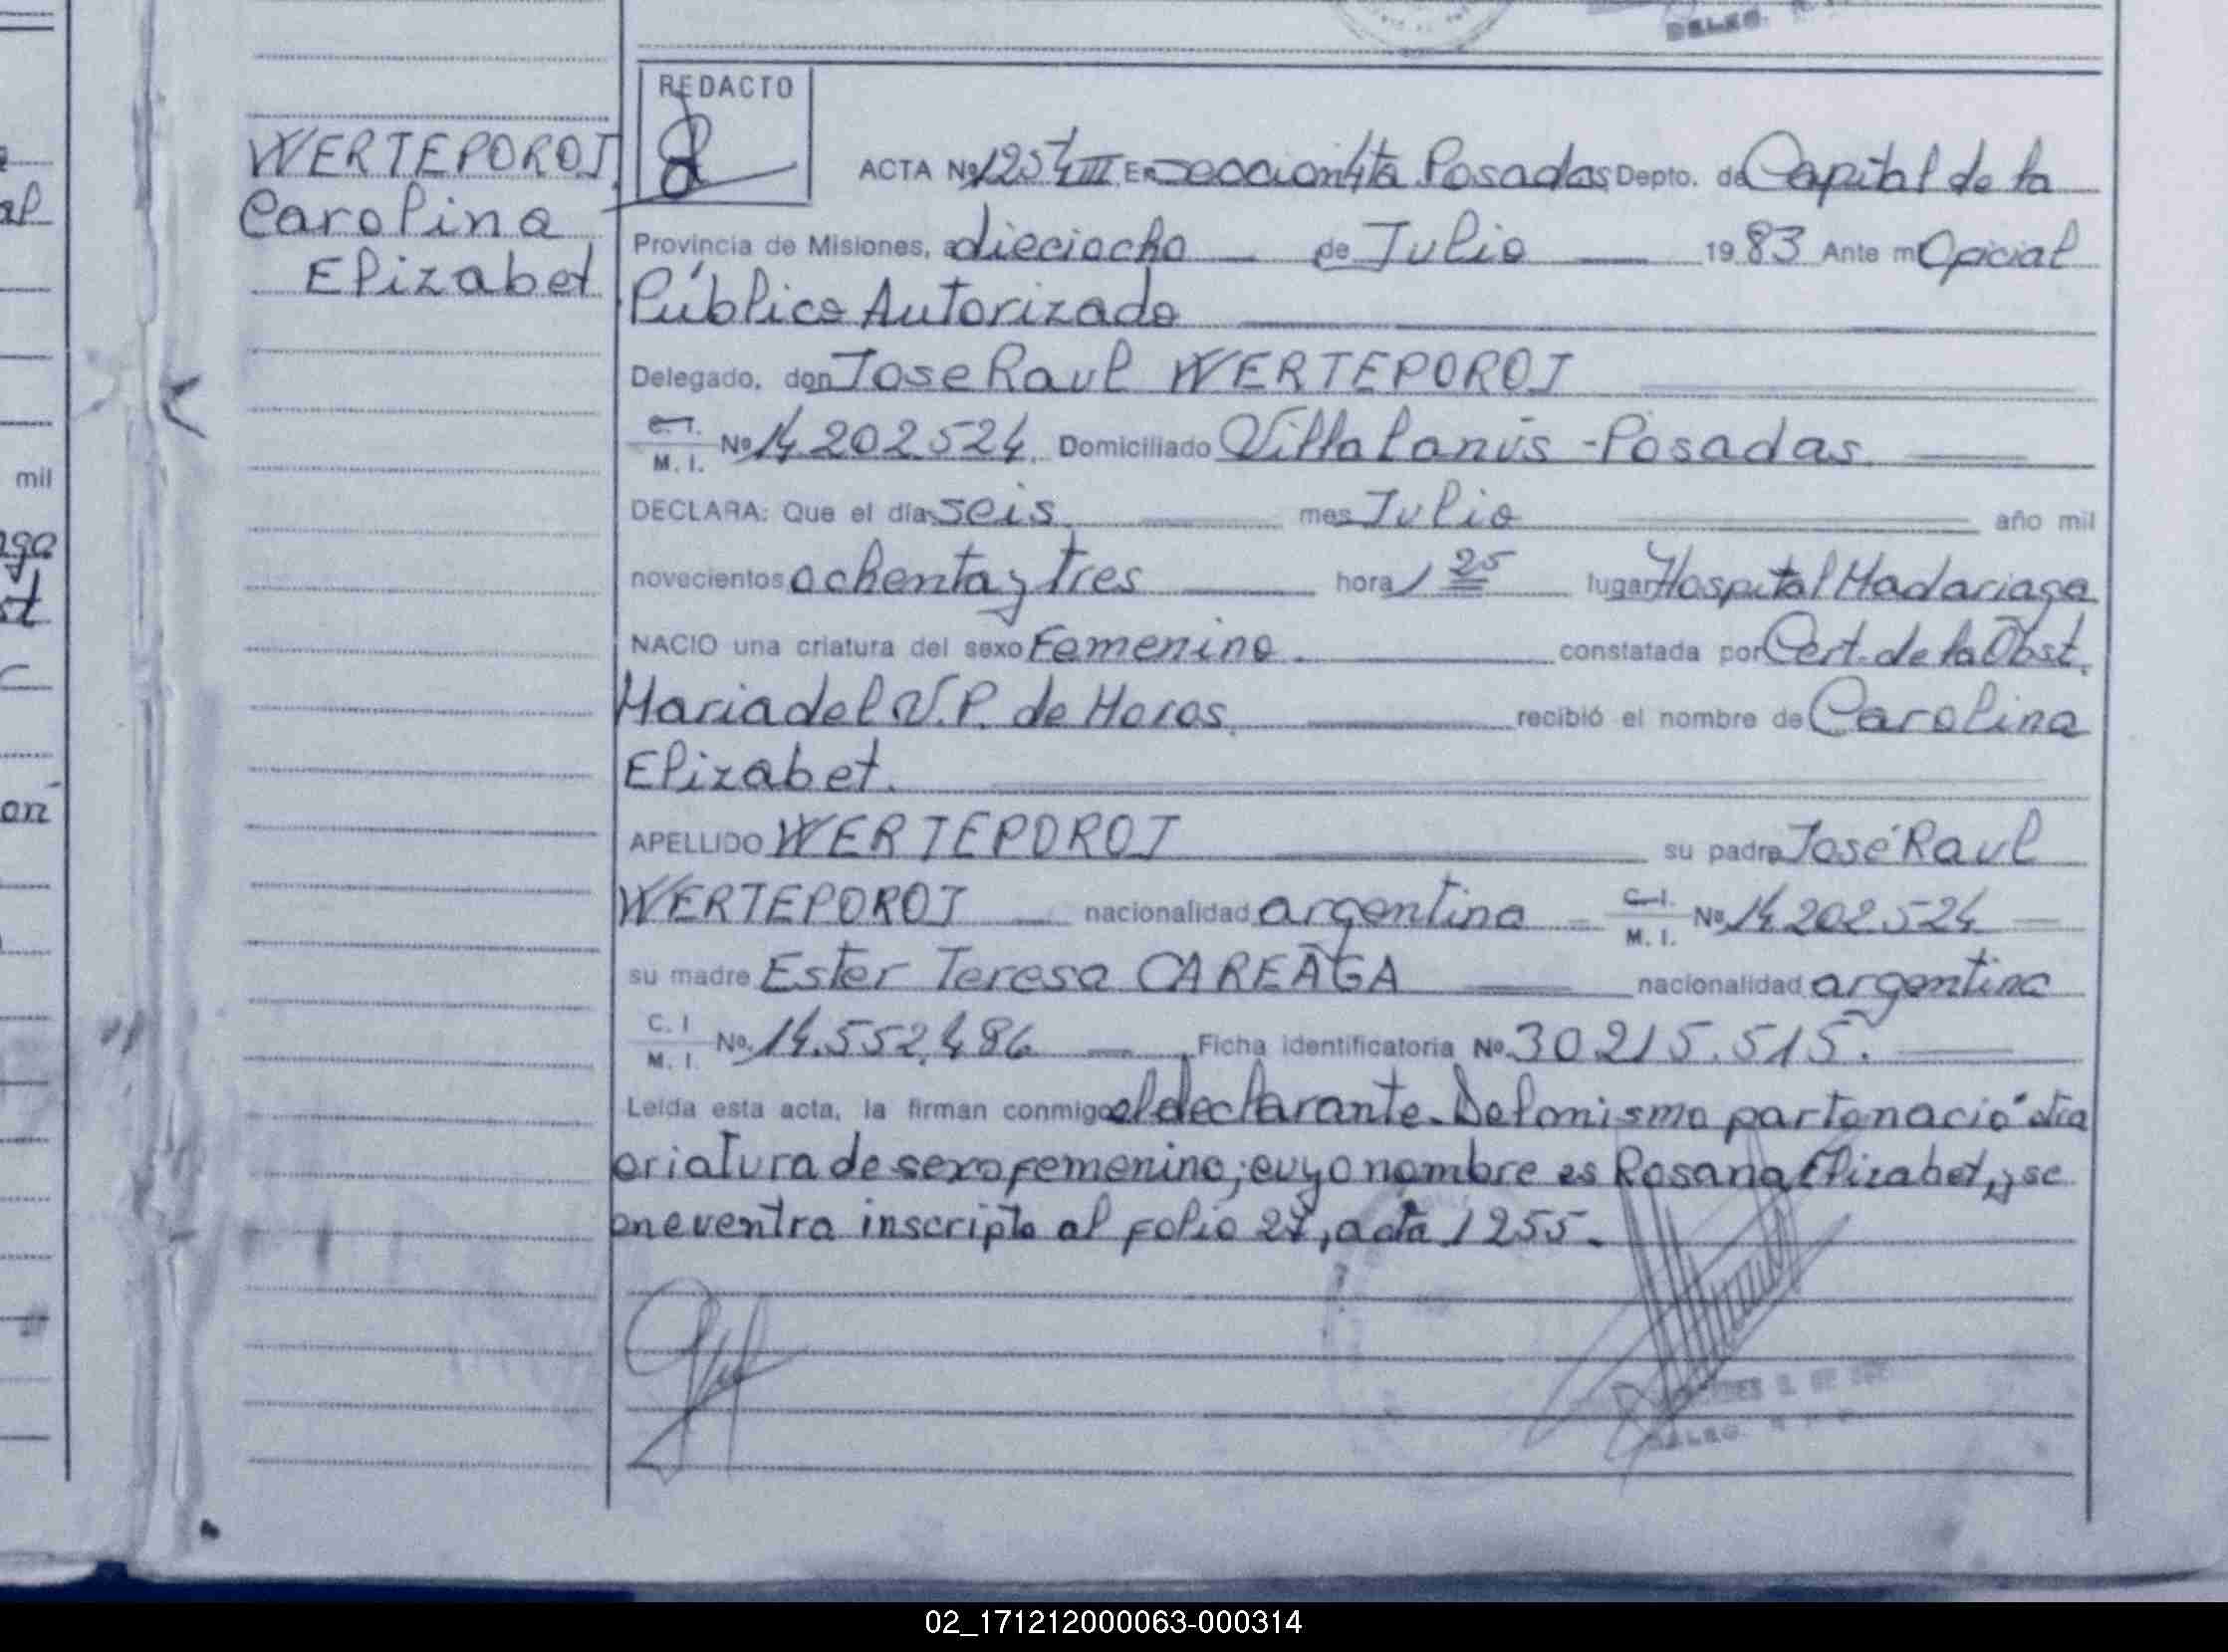 DELEG.
REDACTO
WERTEPOROJ
Carolina
Elizabet
ACTA Nº 1254 III En Seccion 4ta Posadas Depto. de Capital de la
Provincia de Misiones, a dieciocho de Julio 1983 Ante mi Oficial
Público Autorizado
Delegado, don Jose Raul WERTEPOROJ
C. I. / M. I. Nº 14.202.524. Domiciliado Villa Lanús - Posadas.
DECLARA: Que el día seis mes Julio año mil
novecientos ochenta y tres hora 1 25 lugar Hospital Madariaga
NACIO una criatura del sexo Femenino. constatada por Cert. de la Obst.
Maria del V. P. de recibió el nombre de Carolina
Elizabet.
APELLIDO WERTEPOROJ su padre José Raul
WERTEPOROJ nacionalidad argentina C. I. / M. I. Nº 14.202.524
su madre Ester Teresa CAREAGA nacionalidad argentina
C. I / M. I. No. 14.552.486 Ficha identificatoria Nº 30.215.515.
Leída esta acta, la firman conmigo el declarante. De la misma parto nació otra
criatura de sexo femenino; cuyo nombre es Rosana Elizabet, y se
encuentra inscripto al folio 27, acta 1255.
mil
02_171212000063-000314